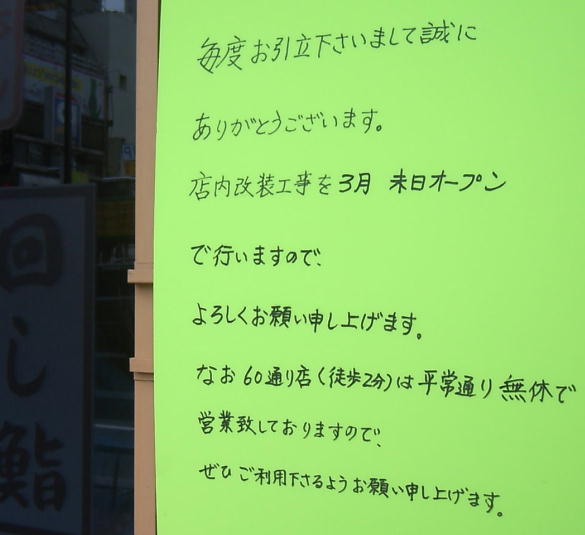 毎度お引立下さいまして誠に
ありがとうございます。
店内改装工事を3月 末日オープン
で行いますので、
よろしくお願い申し上げます。
なお60通り店(徒歩2分)は平常通り無休で
営業致しておりますので、
ぜひご利用下さるようお願い申し上げます。
回し鮨